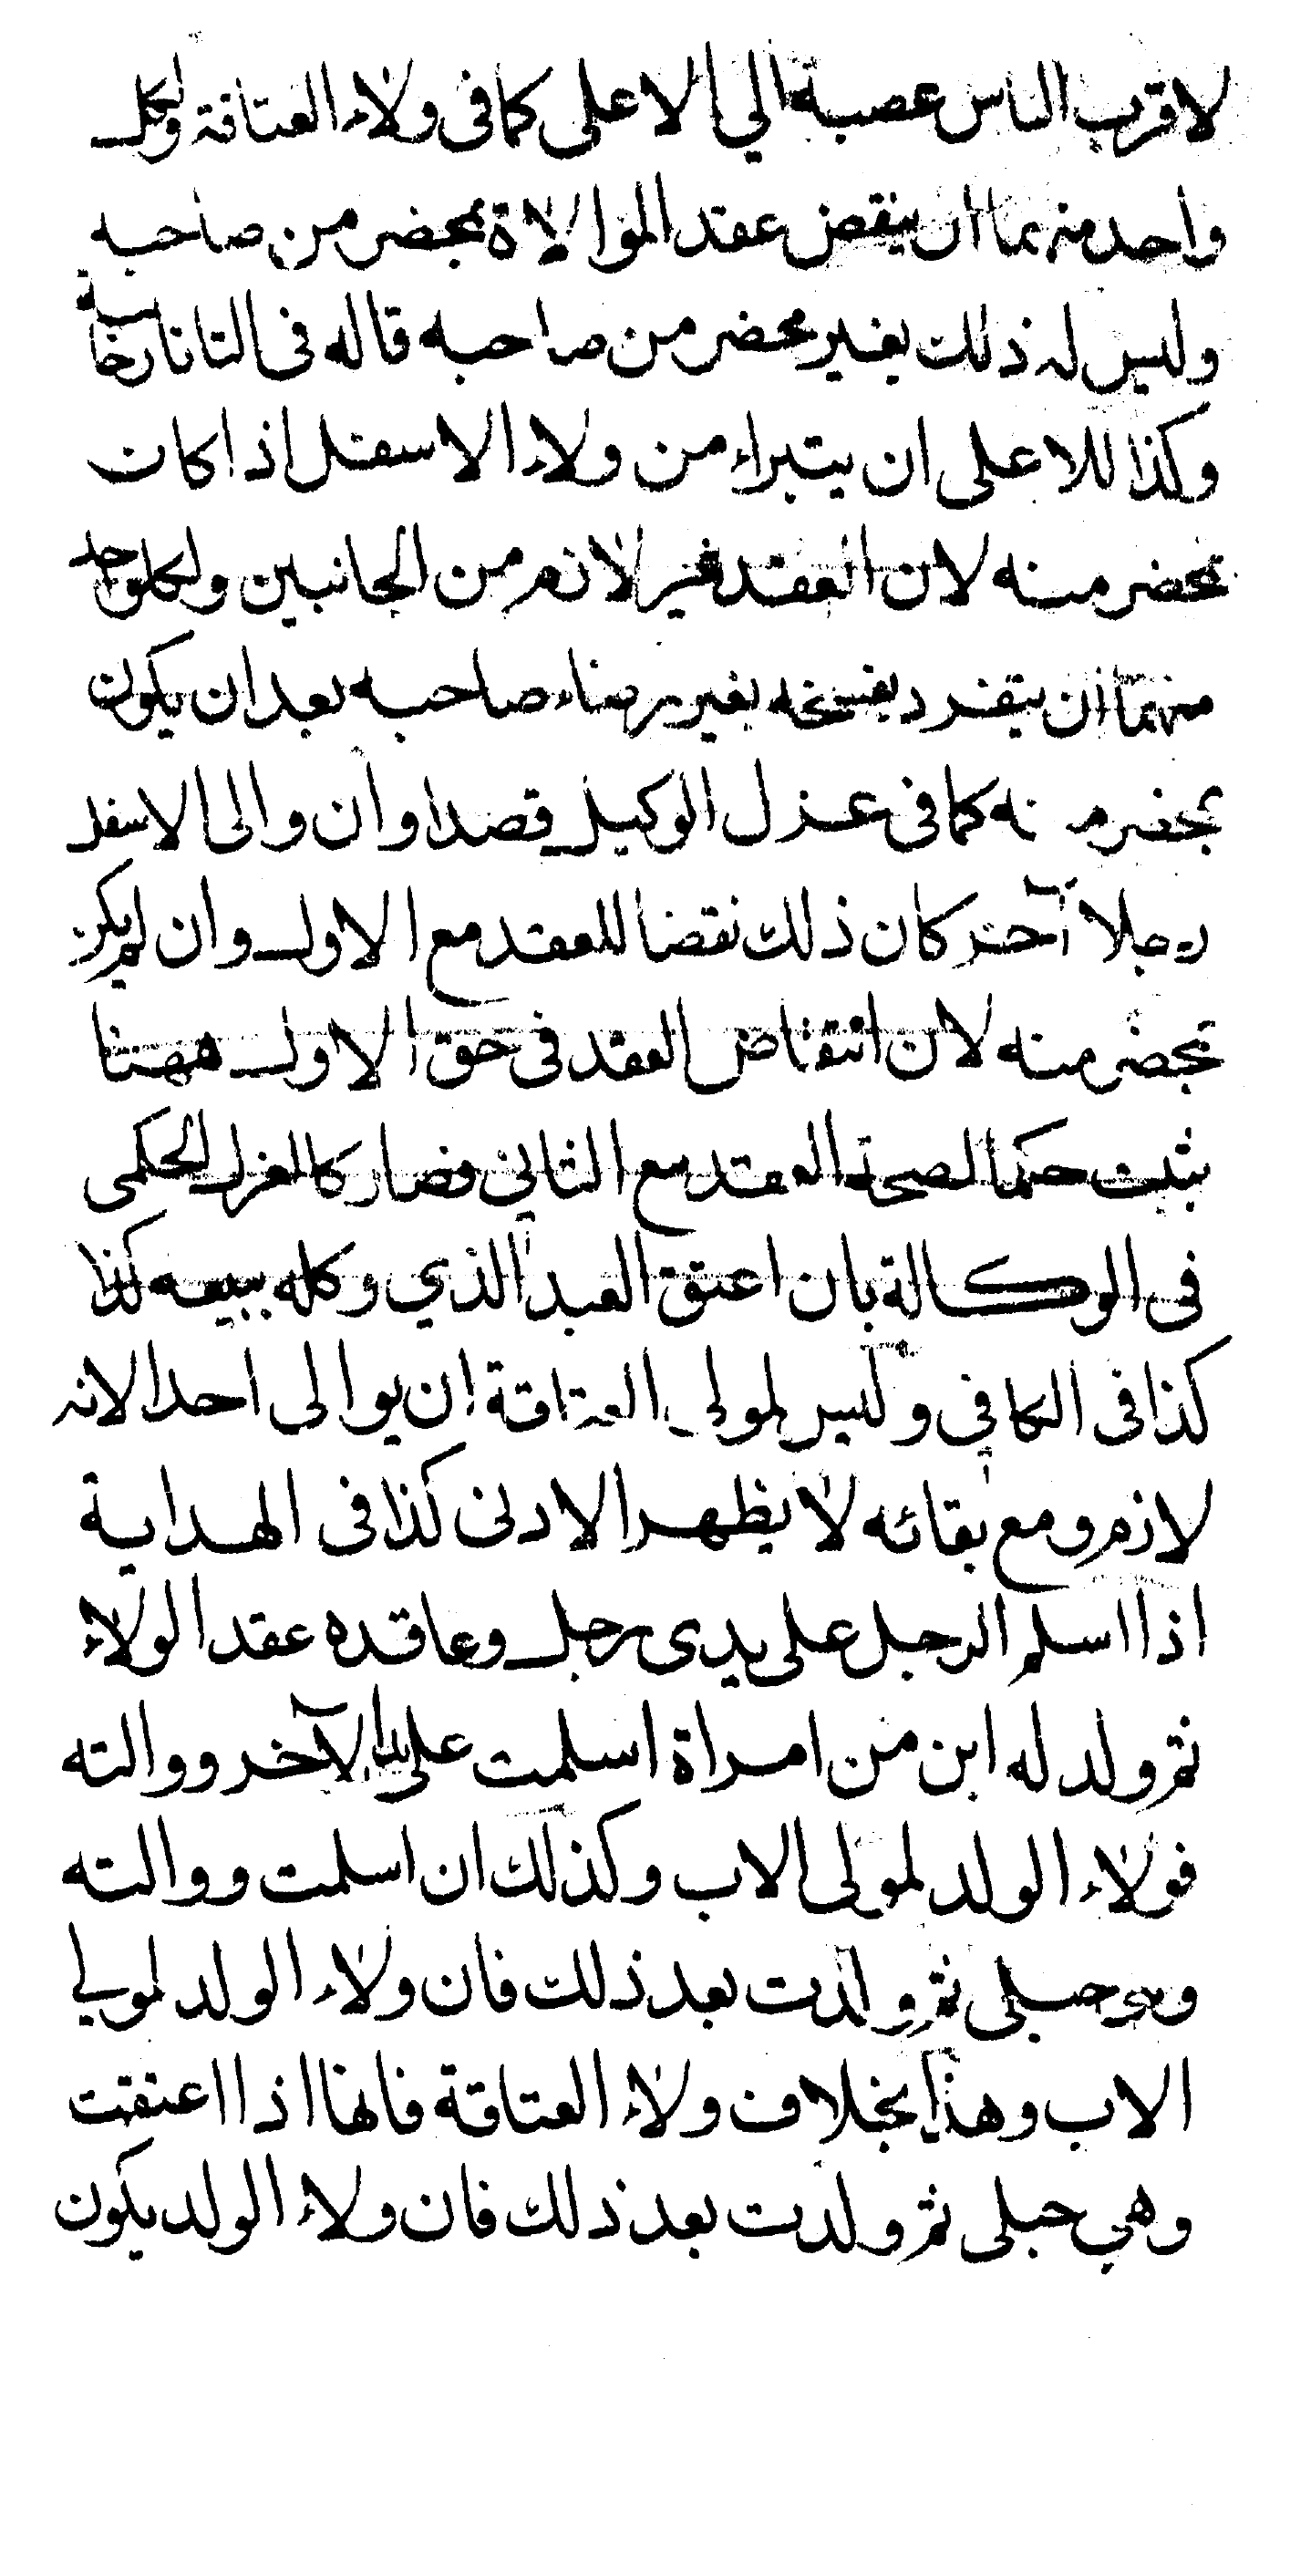 لاقرب الناس عصبة الي الاعلى كما في ولاء العتاقة ولكل
واحد منهما ان ينقض عقد الموالاة بمحضر من صاحبه
وليس له ذلك بغير محضر من صاحبه قاله في التاتارخانية
وكذا للاعلى ان يتبراء من ولاء الاسفل اذا كان
بمحضر منه لان العقد غير لازم من الجانبين ولكل واحد
منهما ان ينفرد بفسخه بغير رضاء صاحبه بعد ان يكون
بمحضر منه كما في عزل الوكيل قصدا وان والى الاسفل
رجلا آخر كان ذلك نقضا للعقد مع الاول وان لم يكن
بمحضر منه لان انتقاض العقد في حق الاول ههنا
يثبت حكما لصحة العقد مع الثاني فصار كالعزل الحكمي
في الوكالة بان اعتق العبد الذي وكله ببيعه كذا
كذا في الكافي وليس لمولى العتاقة ان يوالى احدا لانه
لازم ومع بقائه لا يظهر الادنى كذا في الهداية
اذا اسلم الرجل على يدى رجل وعاقده عقد الولاء
ثم ولد له ابن من امراة اسلمت على يد الآخر ووالته
فولاء الولد لمولى الاب وكذلك ان اسلمت ووالته
وهي حبلى ثم ولدت بعد ذلك فان ولاء الولد لمولي
الاب وهذا بخلاف ولاء العتاقة فانها اذا اعتقت
وهي حبلى ثم ولدت بعد ذلك فان ولاء الولد يكون